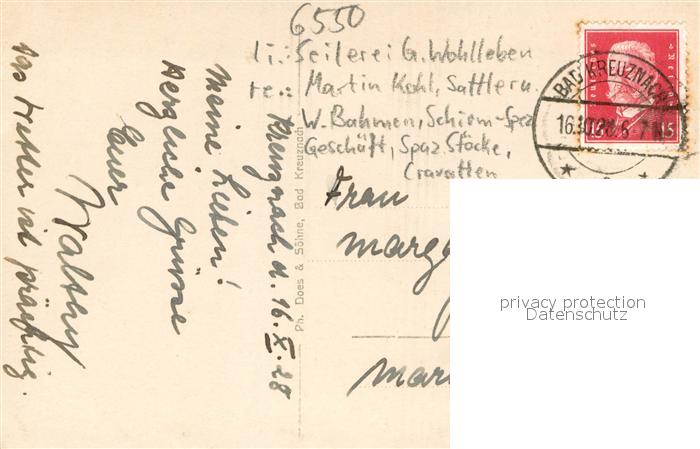 6550
li.: Seilerei G. Wohlleben
re.: Martin Kohl, Sattleru.
W. Bahmen, Schirm-Spaz
Geschäft, Spaz Stöcke,
Cravatten
BAD KREUZNACH
15
Kreuznach d. 16.X.28
Meine Lieben!
Herzliche Grüsse
Euer
Walther
Das Wetter ist prächtig.
Ph. Does & Söhne, Bad Kreuznach
Frau
privacy protection
Datenschutz